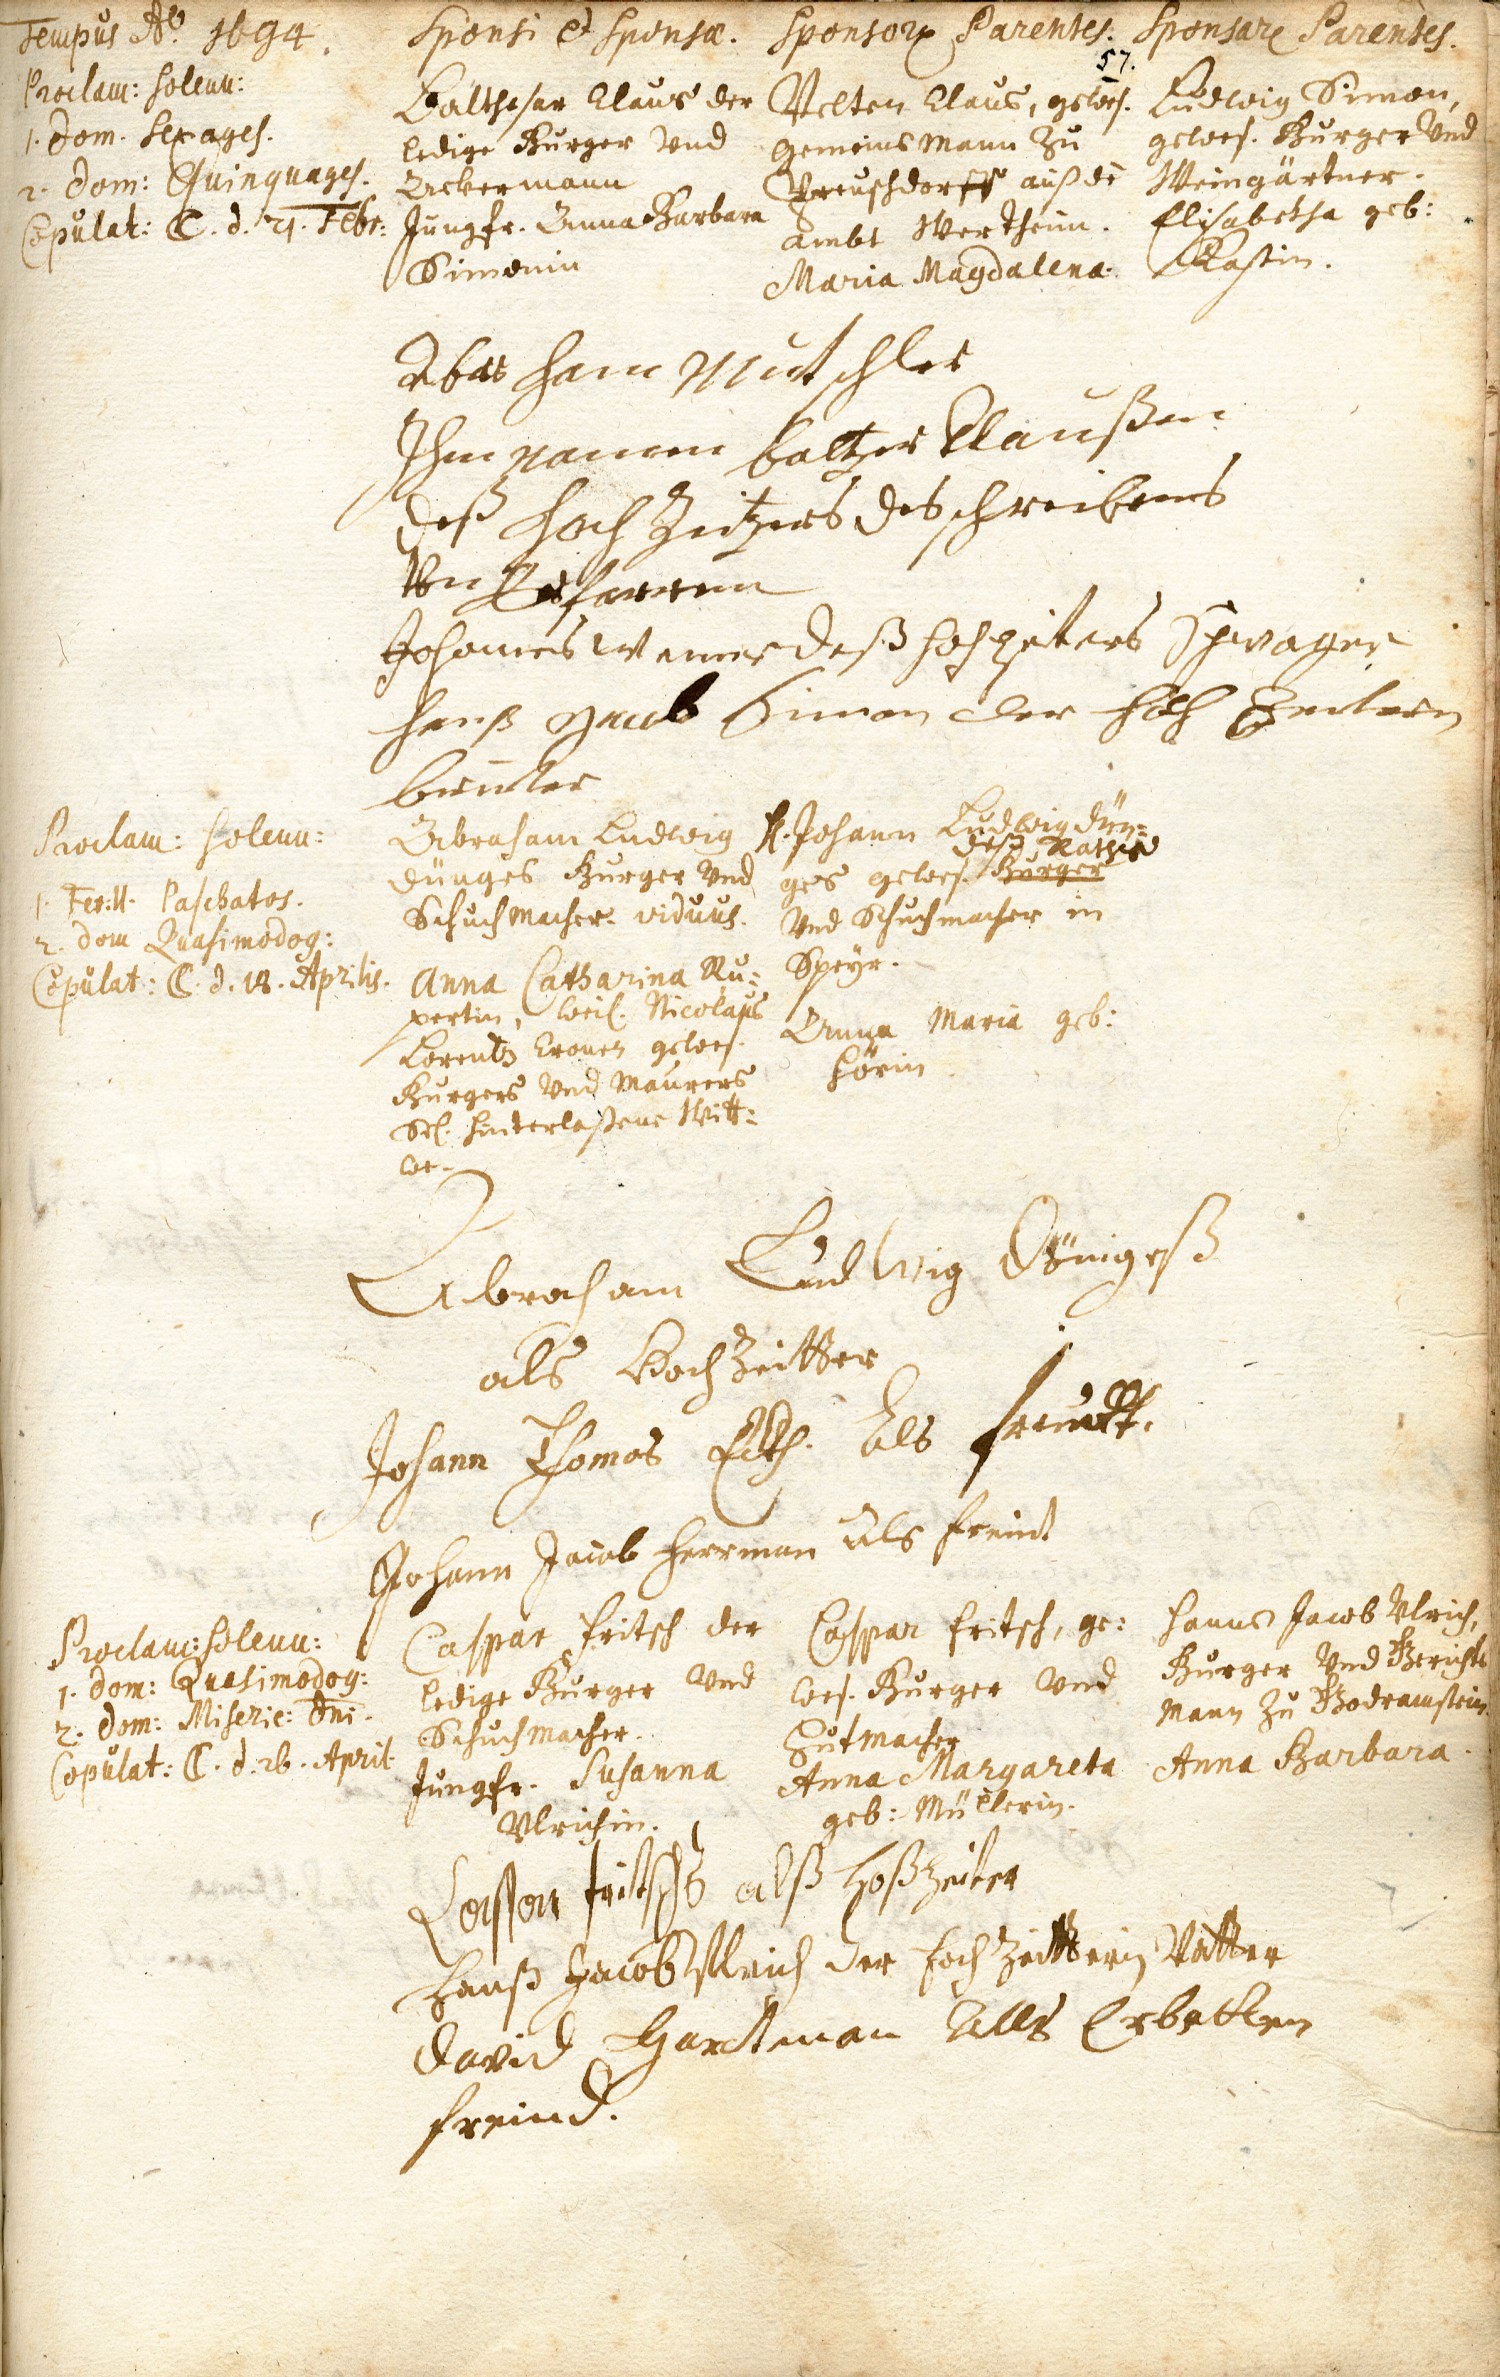 Tempus Aº. 1694.
Sponsi et Sponsæ.
Sponsor. Parentes.
Sponsar. Parentes.
57.
Proclam: solenn:
1. Dom. Sexages.
2. Dom: Quinquages.
Copulat: C. d. 21. Febr:
Balthasar Claus der
ledige Burger und
Ackermann
Jungfr. Anna Barbara
Simonin
Velten Claus, gewes.
Gemeinsmann zu
Preuschdorff auß dē
Ambt Wertheim.
Maria Magdalena.
Ludwig Simon,
gewes. Burger und
Weingärtner.
Elisabetha geb:
Kastin.
Abraham Mutschler
Ihm namen baltzer Claußen
deß hoch Zeitzers des schreibens
Vn Erfarren
Johannes Wener deß hoch zeiters Schwager
hanß Jacob Simon der hoch Zeitern
bruder
Proclam: solenn:
1. Fer: II. Paschatos.
2. Dom Quasimodog:
Copulat: C. d. 18. Aprilis.
Abraham Ludwig
Dünges Burger und
Schuchmacher. viduus.
Anna Catharina Ru=
pertin, weil. Nicolaus
Lorentz Cronen gewes.
Burgers und Maurers
Sel. hinterlaßene Witt=
we.
H. Johann Ludwig Dün=
deß Raths
ges gewes. Burger
und Schuchmacher in
Speyr.
Anna Maria geb:
hörin.
Abraham Ludwig Dönigeß
als Hochzeitter
Johann Thomas Eckh. als freundt.
Johann Jacob Herrman als freint
Proclam: solenn:
1. Dom: Quasimodog:
2. Dom: Miseric: Dni.
Copulat: C. d. 26. April.
Caspar Fritsch der
ledige Burger und
Schuchmacher.
Jungfr. Susanna
Ulrichin.
Caspar Fritsch, ge=
wes. Burger und
Hutmacher
Anna Margareta
geb: Müllerin.
Hanns Jacob Ulrich,
Burger und Gerichts
Mann zu Godramstein.
Anna Barbara.
Casper fritsch alß hoßzeiter
Hanß Jacob Ulrich der hochzeitterin Vatter
David Hartman Alls Erbetten
freind.